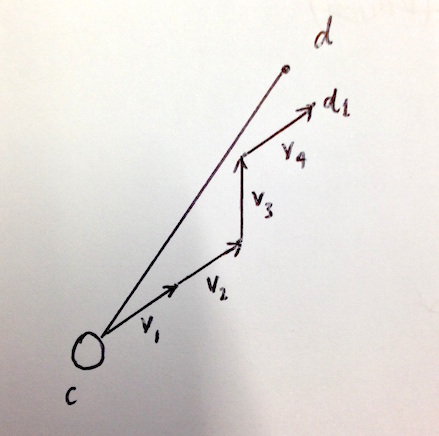 d
d1
V4
V3
V2
V1
C